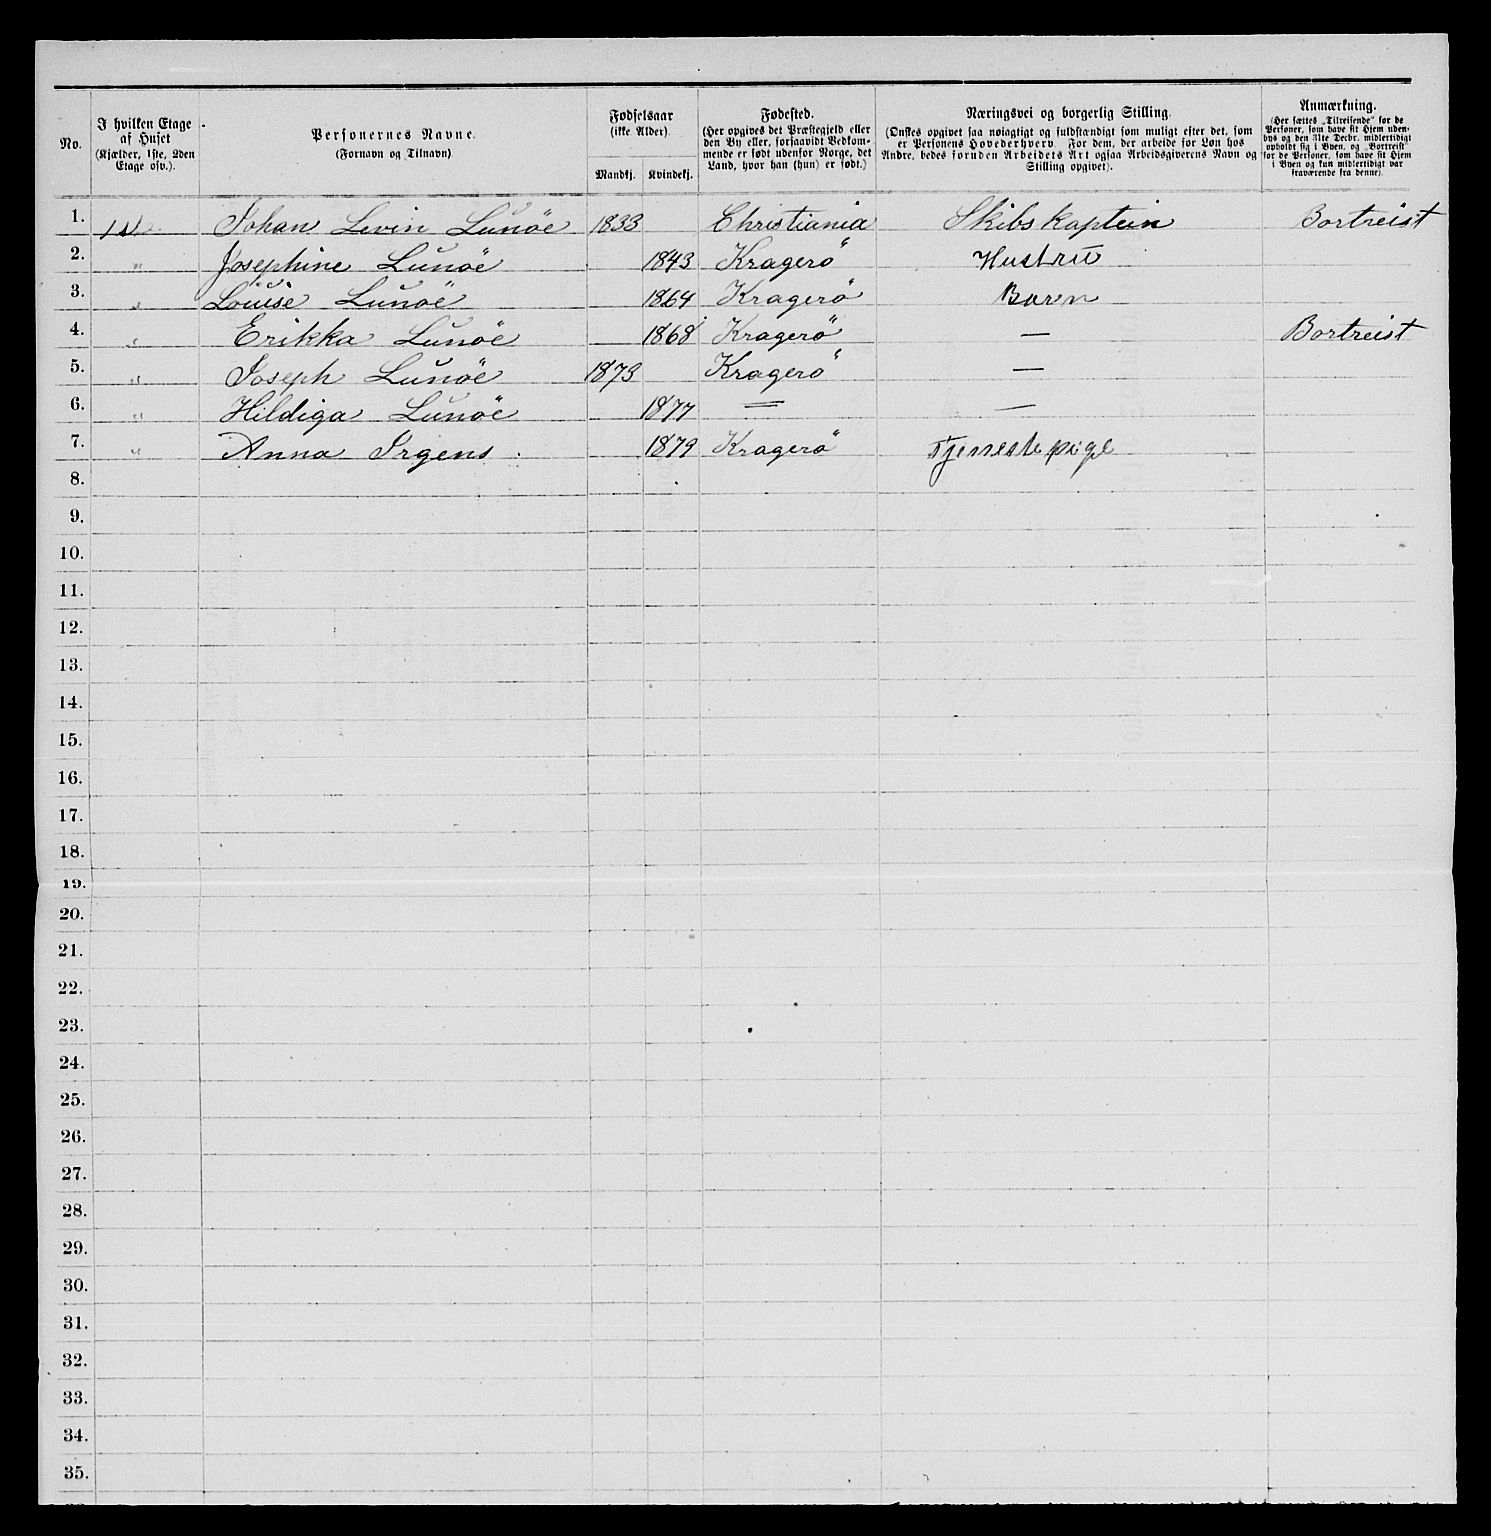 No. | I hvilken Etage af Huset (Kjælder, 1ste, 2den Etage osv.). | Personernes Navne. (Fornavn og Tilnavn) | Fødselsaar (ikke Alder). Mandkj. | Kvindekj. | Fødested. (Her opgives det Præstegjeld eller den By eller, forsaavidt Vedkommende er født udenfor Norge, det Land, hvor han (hun) er født.) | Næringsvei og borgerlig Stilling. (Ønskes opgivet saa nøiagtigt og fuldstændigt som muligt efter det, som er Personens Hovederhverv. For dem, der arbeide for Løn hos Andre, bedes foruden Arbeidets Art ogsaa Arbeidsgiverens Navn og Stilling opgivet). | Anmærkning. (Her sættes „Tilreisende" for de Personer, som have sit Hjem udenbys og den 31te Decbr. midlertidigt opholdt sig i Byen, og „Bortreist" for de Personer, som have sit Hjem i Byen og kun midlertidigt var fraværende fra denne).
1. | 1st | Johan Levin Lunöe | 1833 | | Christiania | Skibskaptein | Bortreist
2. | " | Josephine Lunöe | | 1843 | Kragerö | Hustru
3. | " | Louise Lunöe | | 1864 | Kragerö | Barn
4. | " | Erikka Lunöe | | 1868 | Kragerö | — | Bortreist
5. | " | Joseph Lunöe | 1873 | | Kragerö | —
6. | " | Hildiga Lunöe | | 1877 | = | —
7. | " | Anna Irgens. | | 1879 | Kragerö | Tjenestepige
8.
9.
10.
11.
12.
13.
14.
15.
16.
17.
18.
19.
20.
21.
22.
23.
24.
25.
26.
27.
28.
29.
30.
31.
32.
33.
34.
35.